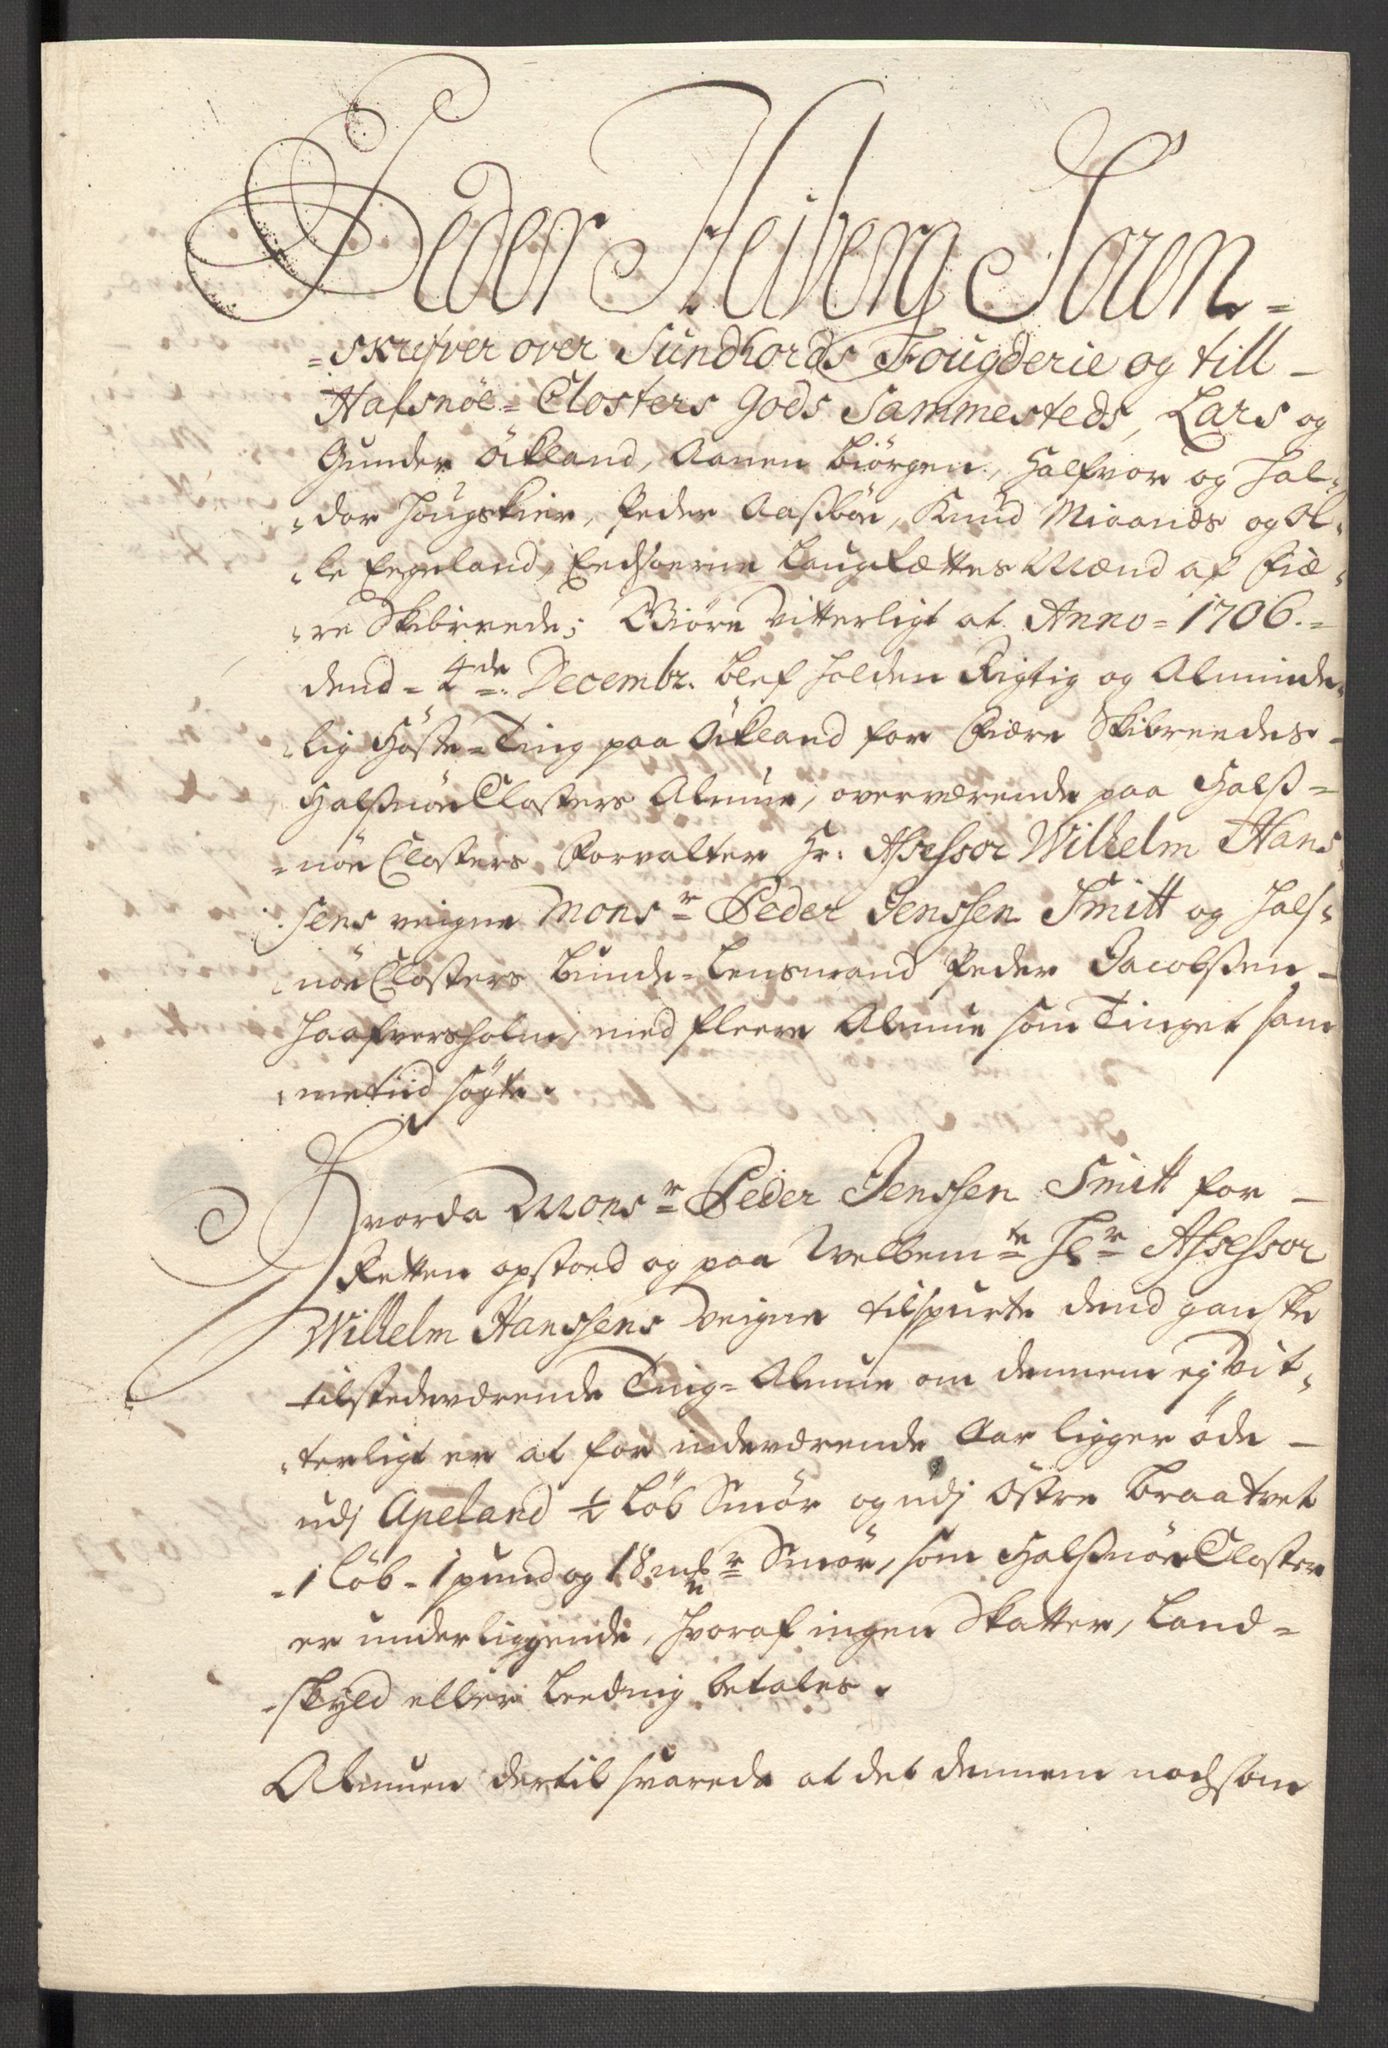 Peder Heiberg Soren-
-skrifver over Sundhords Fougderie og till-
Halsnöe-Closters Gods Sammesteds, Lars og
Gunder Öckland, Aanen Biörgen, Halfvor og Hal-
-dor Hougskier, Peder Aasböe, Knud Miaanes og Ol-
-le Eegeland, Eedsoerne Laugrættes Mænd af Fiæ-
-re Skibrede; Giöre vitterligt at Anno-1706.-
dend-4de Decembr. blef holden Rigtig og Alminde-
-lig Höste-Ting paa Öckland for Fiære Skibreedes-
Halsnöe Closters Almue, overværende paa Hals-
-nöe Closters Forvalter Hr: Assessor Wilhelm Hans
sens veigne Monsr Peder Jenssen Smitt og Hals-
nöe Closters Bunde-Lensmand Peder Jacobsen-
Haafversholm, med fleere Almue som Tinget sam
-metiid sögte.
Hvorda Monsr Peder Jenssen Smitt for-
Retten opstoed og paa Welbemte Hr Assessor
Wilhelm Hanssens veigne tilspurte dend ganske
tilstedeværende Ting-Almue om dennem ej vit-
-terligt er at for indeværende Aar ligger öde-
udj Apeland ½ Löb Smör og udj Östre Braatvet
-1 Löb-1 pund og 18 mkr Smör, som Halsnöe Closter
er underliggende, hvoraf ingen Skatter, Land-
-skyld eller Leeding betales.
Almuen dertil svarede at det dennem nochsom